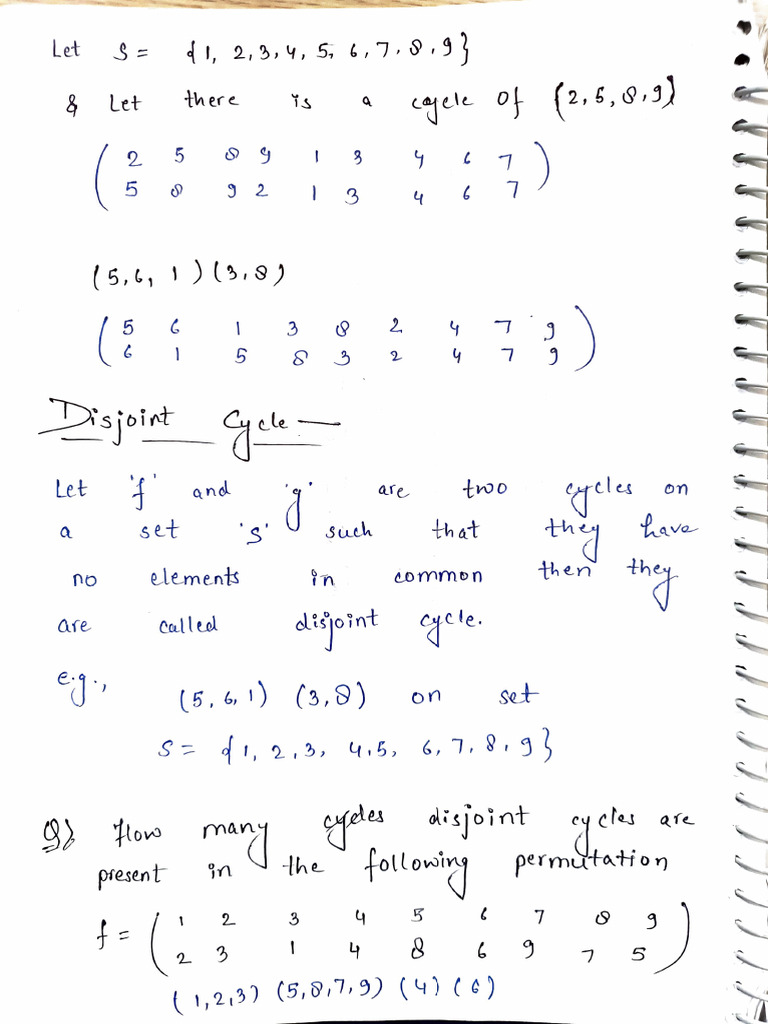 Let S = {1, 2, 3, 4, 5, 6, 7, 8, 9}
& Let there is a cycle of (2, 5, 8, 9)
( 2 5 8 9 1 3 4 6 7 )
5 8 9 2 1 3 4 6 7
(5, 6, 1) (3, 8)
( 5 6 1 3 8 2 4 7 9 )
6 1 5 8 3 2 4 7 9
Disjoint Cycle —
Let 'f' and 'g' are two cycles on
a set 's' such that they have
no elements in common then they
are called disjoint cycle.
e.g., (5, 6, 1) (3, 8) on set
S = {1, 2, 3, 4, 5, 6, 7, 8, 9}
Q} How many cycles disjoint cycles are
present in the following permutation
f = ( 1 2 3 4 5 6 7 8 9 )
2 3 1 4 8 6 9 7 5
(1, 2, 3) (5, 8, 7, 9) (4) (6)